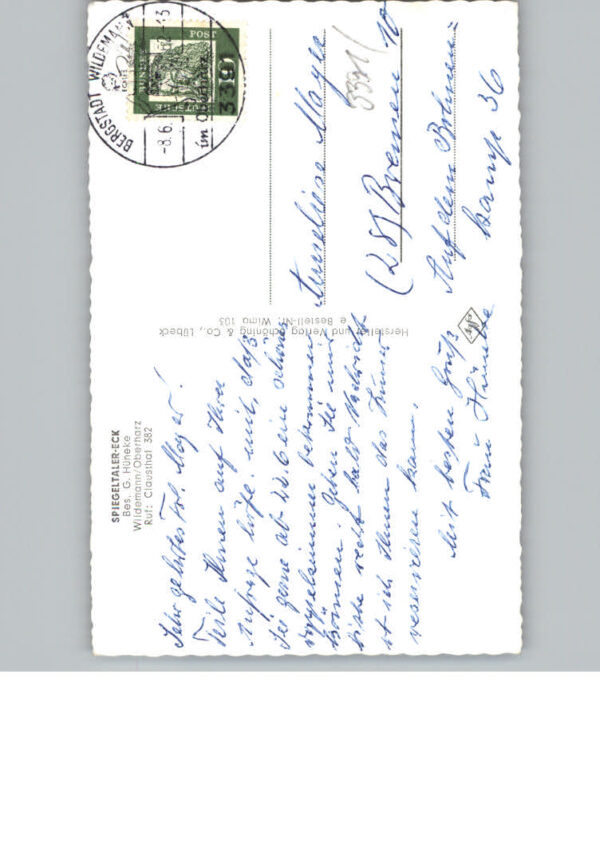 SPIEGELTALER-ECK
Bes. G. Hüneke
Wildemann/Oberharz
Ruf: Clausthal 382
Sehr geehrtes Frl. Mayer!
Teile Ihnen auf Ihre
Anfrage höfl. mit, daß
Sie gerne ab 22.6 ein schönes
Doppelzimmer bekommen
können. Geben Sie mir
bitte recht bald Nachricht
ob ich Ihnen das Zimmer
reservieren kann.
Mit besten Gruß
Frau Hüneke
Hersteller und Verlag Schöning & Co., Lübeck
Bestell-Nr. Wima 103
Agfa
BERGSTADT WILDEMANN
im Oberharz
-8.6.
-13
3391
POST
Anneliese Mayer
(28) Bremen 10
Auf dem Bohnen-
kamp 36
3391